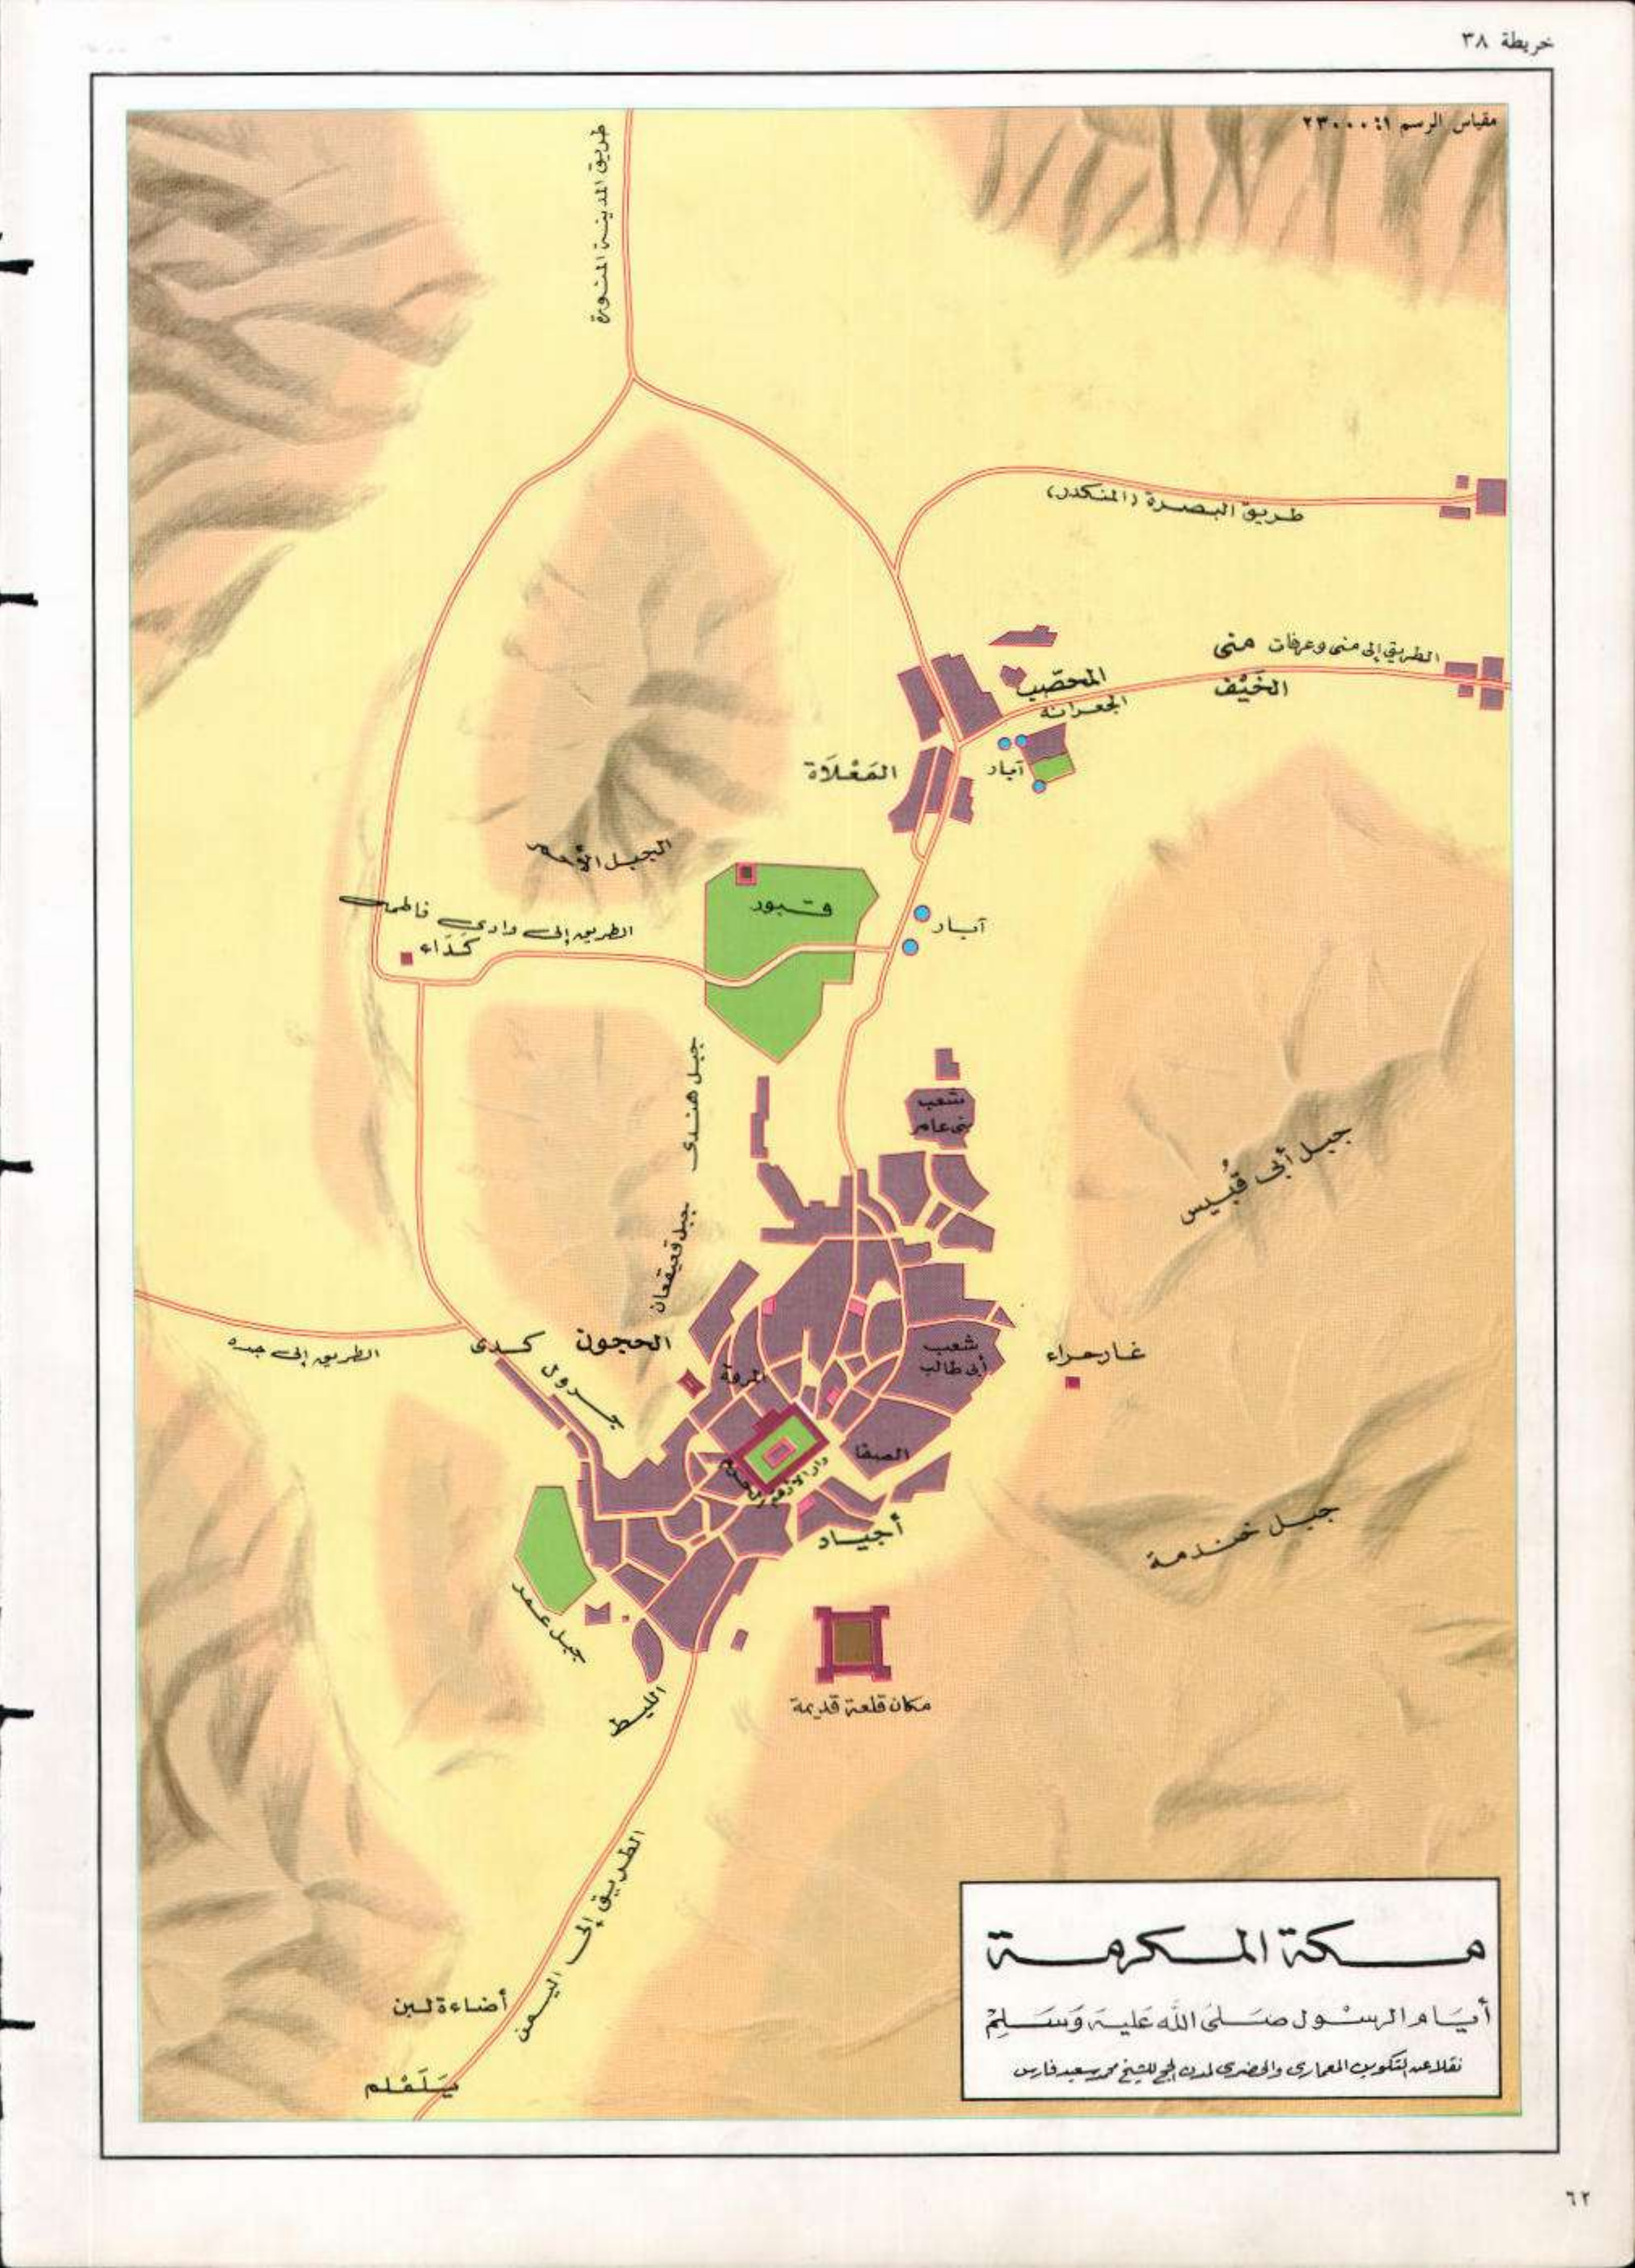 خريطة ٣٨
مقياس الرسم ١:٢٣٠٠٠
طريق المدينة المنورة
طريق البصرة (المنكدر)
الطريق إلى منى وعرفات
منى
الخَيْف
المحصّب
الجعرانة
آبار
المَعْلَاة
الجبل الأحمر
قبور
آبار
الطريق إلى وادى فاطمة
كَدَاء
جبل هندى
شعب
بنى عامر
جبل أبى قُبيس
جبل قعيقعان
الطريق إلى جده
كدى
الحجون
جرول
المروة
شعب
أبى طالب
غار حراء
الصفا
دار الأرقم
أجياد
جبل خندمة
جبل عمر
مكان قلعة قديمة
الليط
الطريق إلى اليمن
أضاءة لبن
يَلَمْلم
مكة المكرمة
أيَام الرسْول صَلى اللَّه عَليه وَسَلم
نقلا عن التكوين المعمارى والحضرى لمدن الحج للشيخ محمد سعيد فارس
٦٢